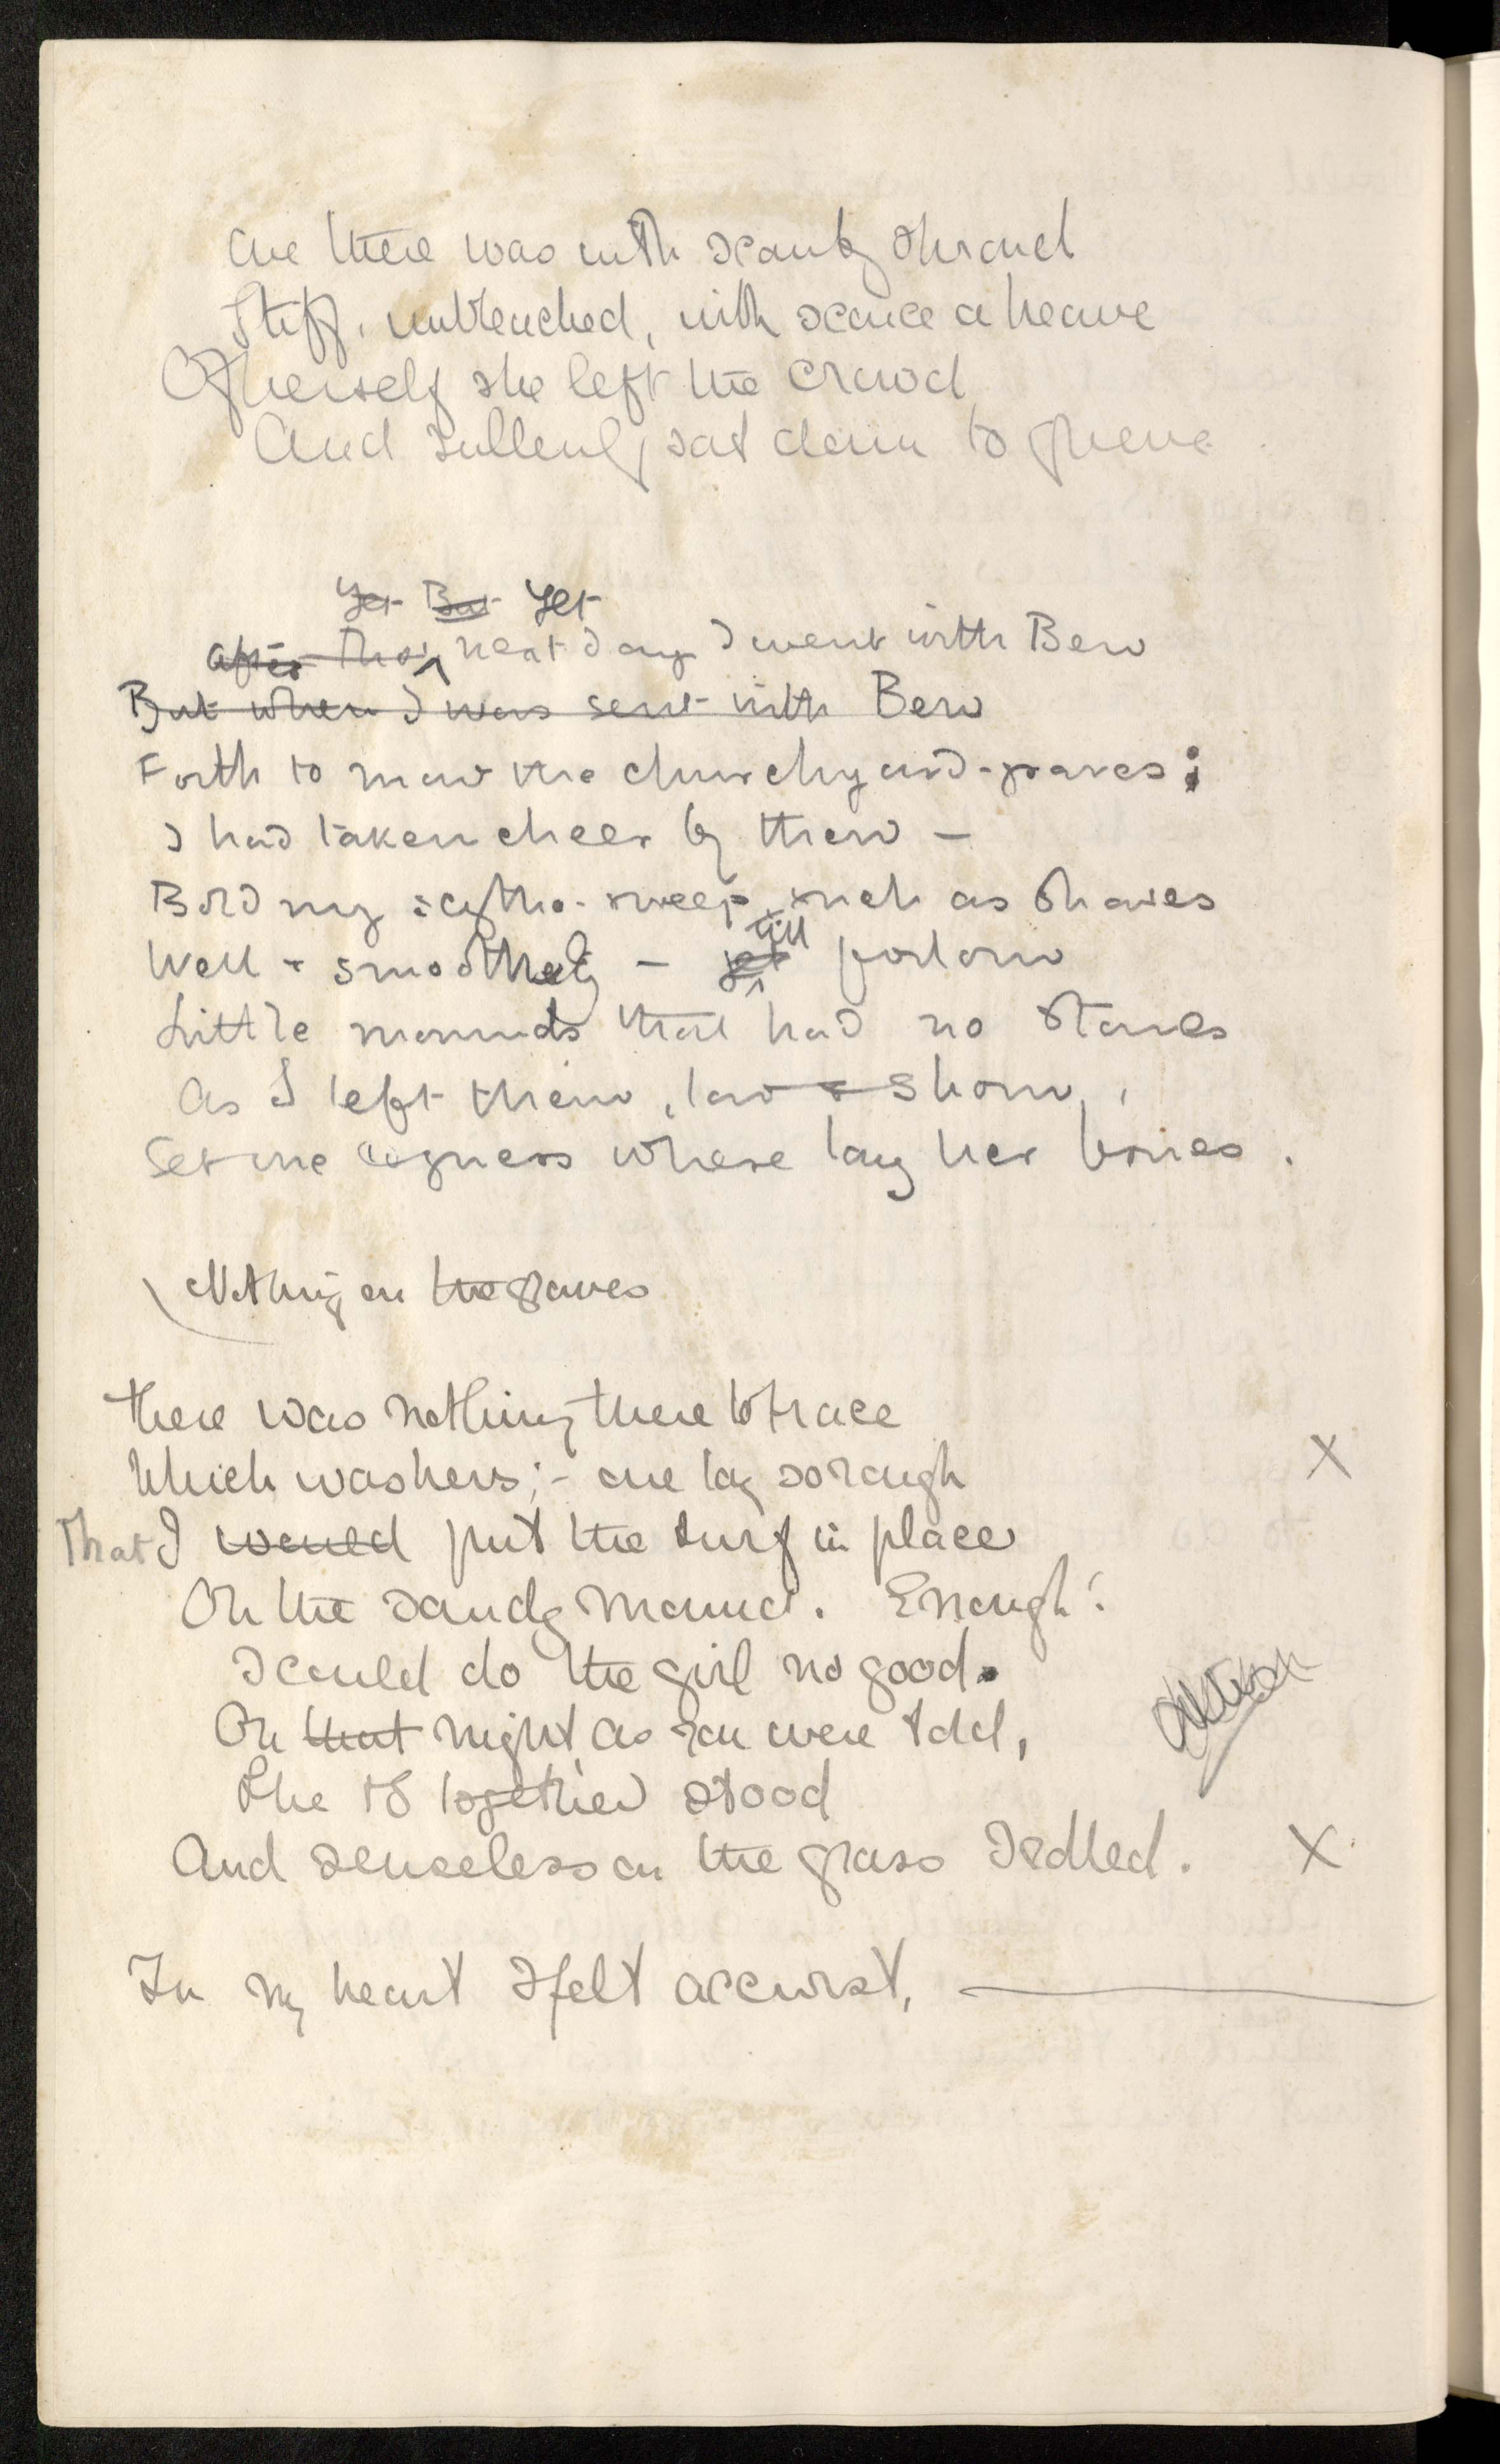 One there was with scanty shroud
Stiff, unbleached, with scarce a heave
Of herself she left the crowd
And sullenly sat down to grieve.
Yet But Yet
After this, next day I went with Ben
But when I was sent with Ben
Forth to mow the churchyard-graves:
I had taken cheer by then –
Bold my scythe-sweep, such as shaves
Well & smoothely – yet till forlorn
Little mounds that had no stones
As I left them, low & shorn,
Set me agness where lay her bones.
Nothing on the graves
There was nothing there to trace
Which was hers; – one lay so rough X
That I would put the turf in place
On the sandy mound. Enough!
I could do the girl no good.
On that night as you were told,
She & I together stood
And senseless on the grass I rolled. X
In my heart I felt accurst,